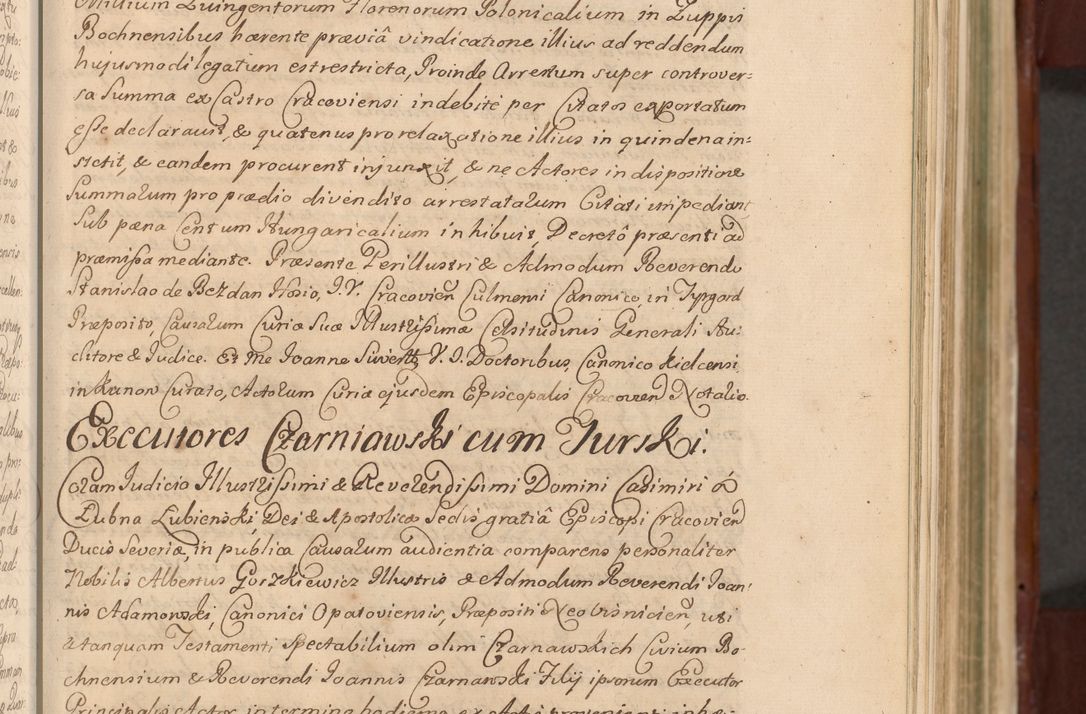 Millium Quingentorum Florenorum Polonicalium in Zuppis
Bochnensibus hærente præviâ vindicatione illius ad reddendum
hujusmodi legatum estrestricta, Proinde Arrestum super controver=
sa Summa ex Castro Cracoviensi indebitè per Citatos exportatum
esse declaravit, & quatenus pro relaxatione illius in quindena in=
stetit, & eandem procurent injunxit, & ne Actores in dispositione
Summarum pro prædio divendito arrestatarum Citati impediant
Sub pæna Centum Hungaricalium inhibuit, Decretô præsenti ad
præmissa mediante. Præsente Perillustri & Admodum Reverendo
Stanislao de Bezdan Hosio, J.V. Cracovien̄ Culmensi Canonico, in Typgord
Præposito, Causarum Curiæ Suæ Illustrissimæ Celsitudinis Generali Au=
ditore & Judice. Et me Joanne Suventt, V. J. Doctoribus, Canonico Kielcensi
in Kunow Curato, Actorum Curiæ ejusdem Episcopalis Cracovien̄ Notario.
Executores Czarniawski cum Jurski.
Coram Judicio Illustrissimi & Reverendissimi Domini Casimiri à
Lubna Lubienski, Dei & Apostolicæ Sedis gratiâ Episcopi Cracovien̄
Ducis Severiæ, in publica Causarum audientia comparens personaliter
Nobilis Albertus Goszkiewicz Illustris & Admodum Reverendi Joan=
nis Adamowski, Canonici Opatoviensis, Præpositi Neovisnicien̄, uti
a tanquam Testamenti Spectabilium olim Czarnawskich Civium Bo=
chnensium & Reverendi Joannis Czarnawski Filij ipsorum Executor
Principalis Actor, in termino hodierno ex Actô proveniente inhæ=